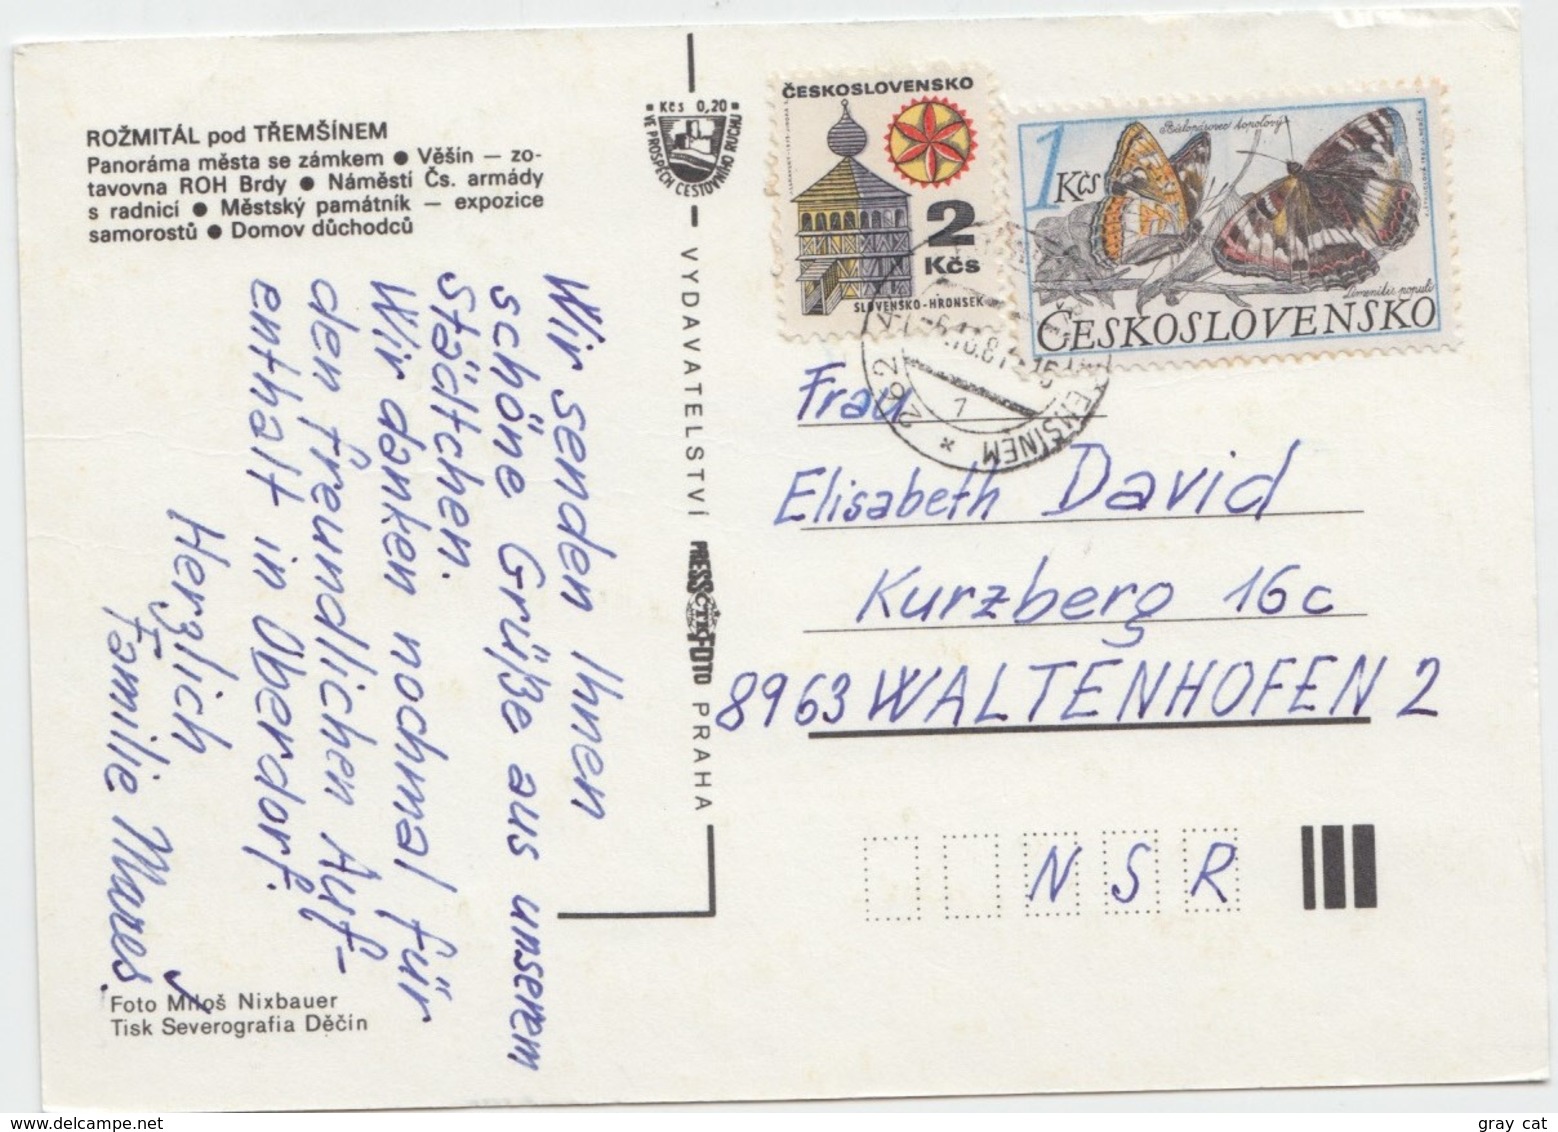 ROŽMITÁL pod TŘEMŠÍNEM
Panoráma města se zámkem ● Věšín — zo-
tavovna ROH Brdy ● Náměstí Čs. armády
s radnicí ● Městský památník — expozice
samorostů ● Domov důchodců
Wir senden Ihnen
schöne Grüße aus unserem
Städtchen.
Wir danken nochmal für
den freundlichen Auf-
enthalt in Oberdorf.
Herzlich
Familie Mareš
Foto Miloš Nixbauer
Tisk Severografia Děčín
Kčs 0,20
VE PROSPĚCH CESTOVNÍHO RUCHU
VYDAVATELSTVÍ PRESSFOTO PRAHA
ČTK
ČESKOSLOVENSKO
2
Kčs
SLOVENSKO-HRONSEK
1
Kčs
Bělopásovec topolový
Limenitis populi
ČESKOSLOVENSKO
262
1
Frau
Elisabeth David
Kurzberg 16c
8963 WALTENHOFEN 2
N S R
gray cat